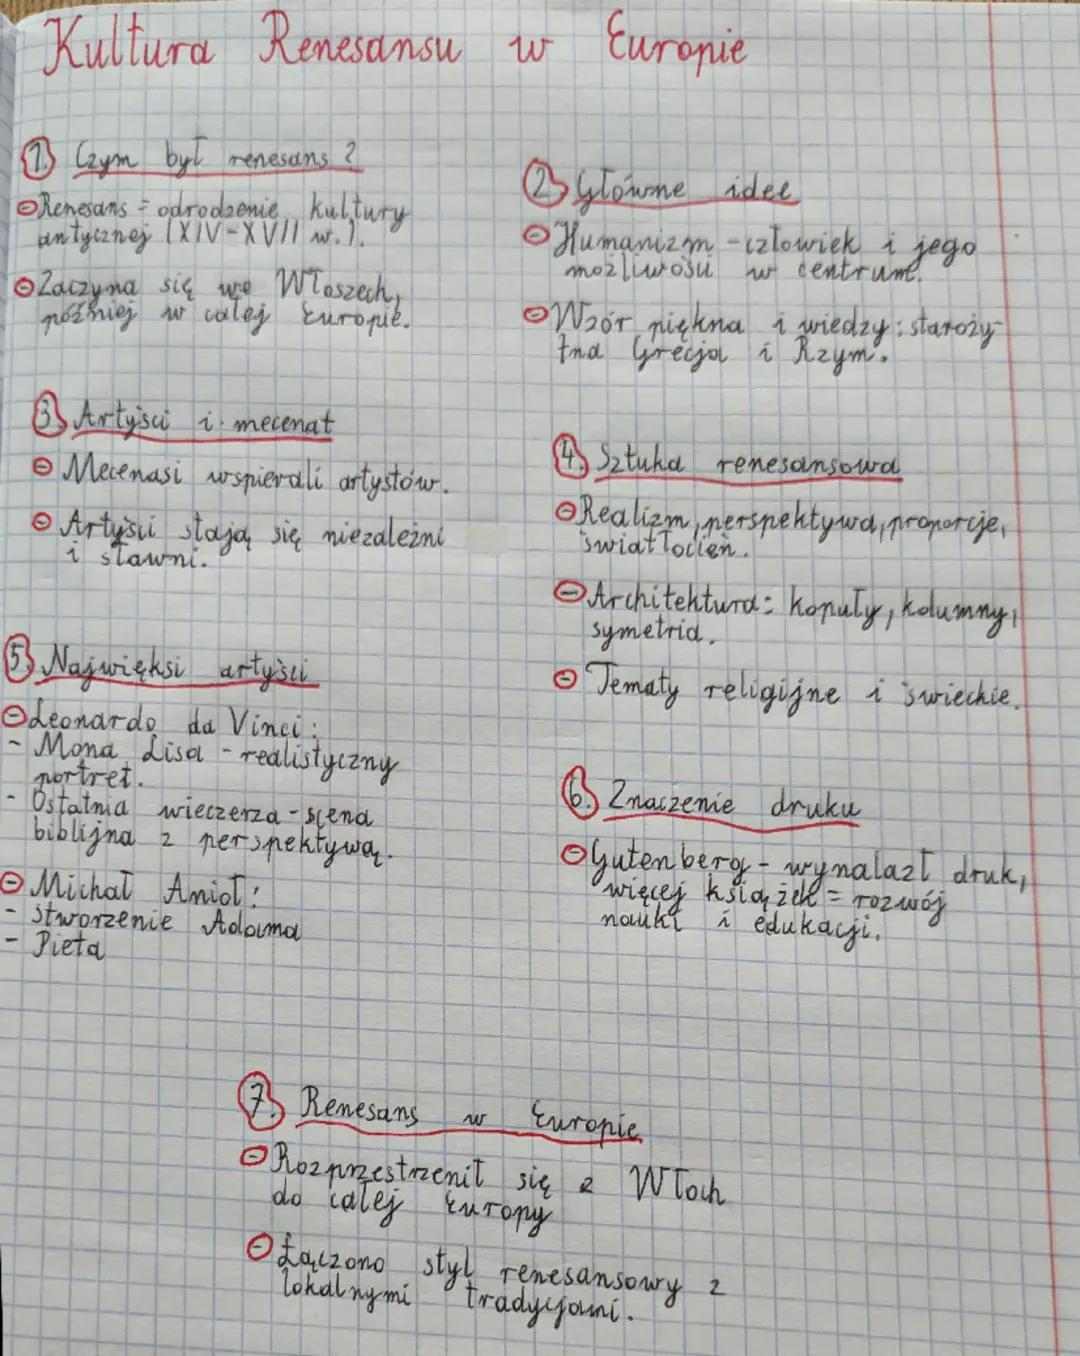 Kultura Renesansu w Europie
1. Czym był renesans?
Renesans = odrodzenie kultury
antycznej (XIV-XVII w.).
Zaczyna się we Włoszech,
później w całej Europie.
2. Główne idee
Humanizm - człowiek i jego
możliwości w centrum.
Wzór piękna i wiedzy: staroży-
tna Grecja i Rzym.
3. Artyści i mecenat
Mecenasi wspierali artystów.
Artyści stają się niezależni
i sławni.
4. Sztuka renesansowa
Realizm, perspektywa, proporcje,
światłocień.
Architektura: kopuły, kolumny,
symetria.
Tematy religijne i świeckie.
5. Najwięksi artyści
Leonardo da Vinci:
- Mona Lisa - realistyczny
portret.
- Ostatnia wieczerza - scena
biblijna z perspektywą.
Michał Anioł:
- stworzenie Adama
- Pieta
6. Znaczenie druku
Gutenberg - wynalazł druk,
więcej książek = rozwój
nauki i edukacji.
7. Renesans w Europie
Rozprzestrzenił się z Włoch
do całej Europy
Łączono styl renesansowy z
lokalnymi tradycjami.